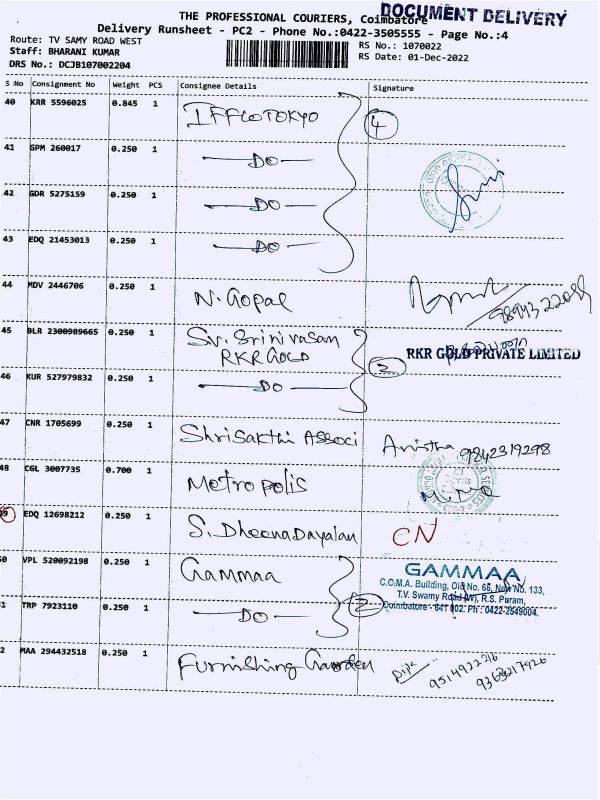 DOCUMENT DELIVERY
THE PROFESSIONAL COURIERS, Coimbatore
Delivery Runsheet - PC2 - Phone No.:0422-3505555 - Page No.:4
Route: TV SAMY ROAD WEST
Staff: BHARANI KUMAR
DRS No.: DCJB107002204
RS No.: 1070022
RS Date: 01-Dec-2022
S No Consignment No Weight PCS Consignee Details Signature
40 KRR 5596025 0.845 1 IFFCOTOKYO 4
41 GPM 260017 0.250 1 DO
42 GDR 5275159 0.250 1 DO
43 EDQ 21453013 0.250 1 DO
44 MDV 2446706 0.250 1 N. Gopal
45 BLR 2300989665 0.250 1 Sv. Srinivasan
RKR GOLD
RKR GOLD PRIVATE LIMITED
46 KUR 527979832 0.250 1 DO
47 CNR 1705699 0.250 1 Shrisakthi Associ 9842319298
48 CGL 3007735 0.700 1 Metropolis
49 EDQ 12698212 0.250 1 S. Dheenadayalan CN
50 VPL 520092198 0.250 1 Gammaa
GAMMAA
C.C.M.A. Building, Old No. 66, New No. 133,
T.V. Swamy Road (W), R.S. Puram,
Coimbatore - 641 002. Ph : 0422-2549004.
1 TRP 7923110 0.250 1 DO 2
2 MAA 294432518 0.250 1 Furnishing Garden